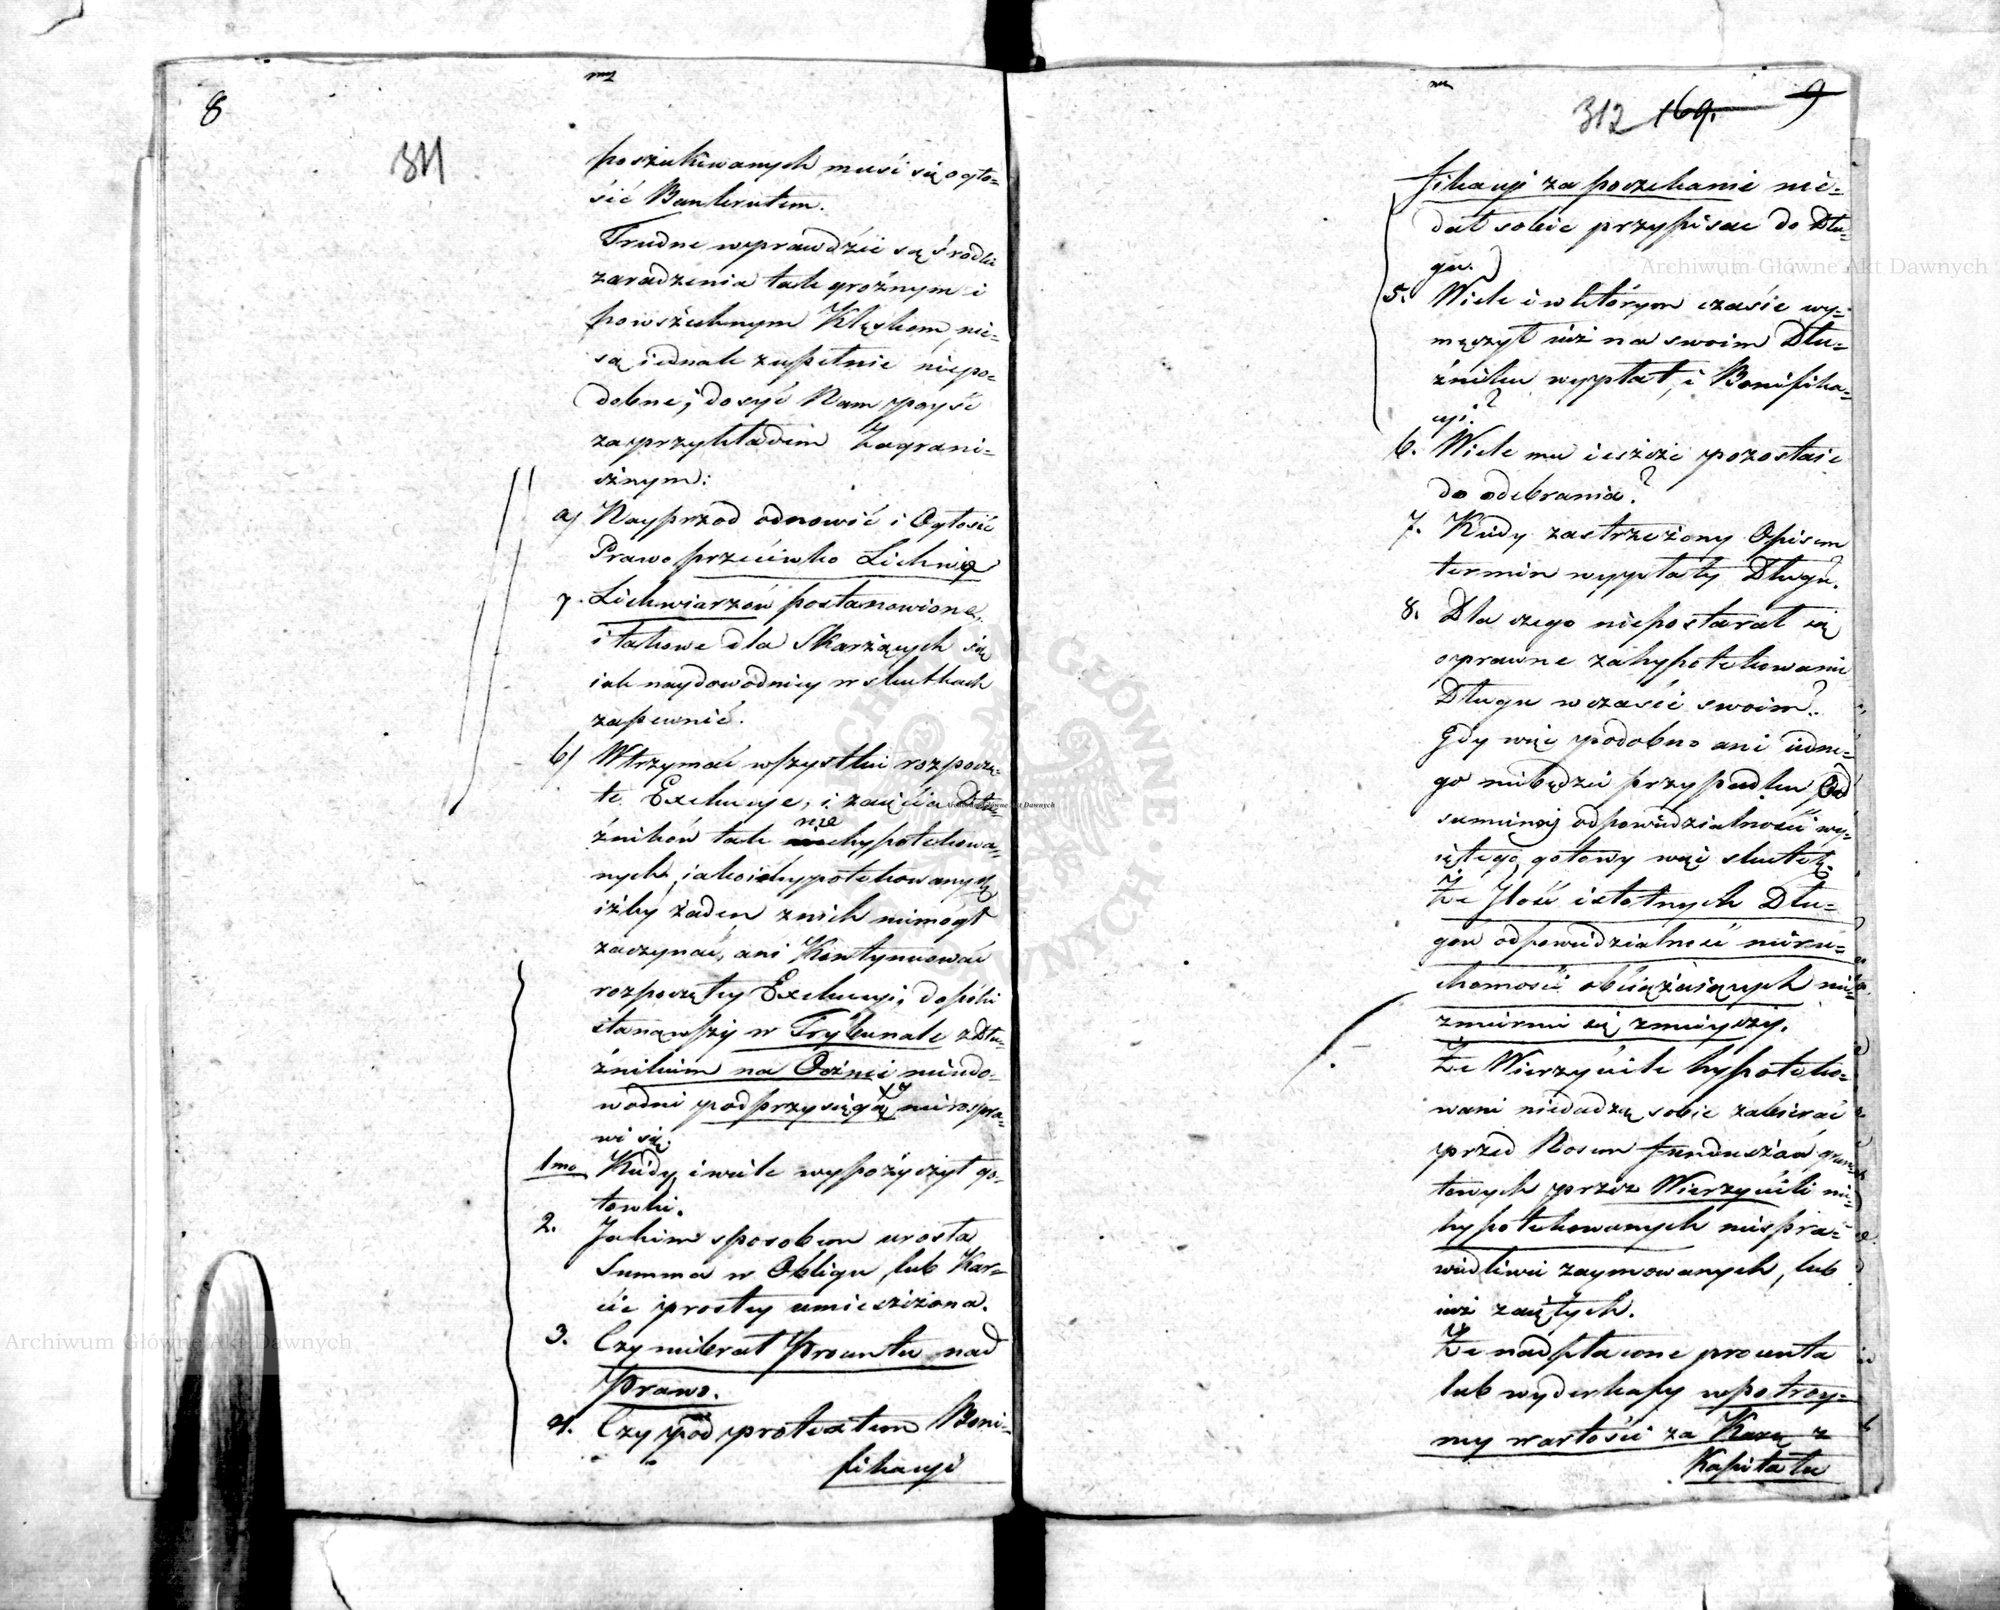 8
311
poszukiwanych musi się ogło=
sić Bankrutem.
Trudne wprawdzie są środki
zaradzenia tak groźnym i
powszechnym Klęskom, nie=
są iednak zupełnie niepo=
dobne; dosyć Nam poyść
za przykładem Zagrani=
cznym:
a) Nayprzod odnowić i Ogłosić
Prawo przeciwko Lichwie
7. Lichwiarzów postanowione,
i takowe dla Skarżących się
iak naydowodniey w skutkach
zapewnić.
b) Wtrzymać wszystkie rozpoczę=
te Exekucye, i zaięcia Dłu=
żników tak nie hypotekowa=
nych, iako i hypotekowanych
iżby żaden z nich niemógł
zaczynać, ani Kontynuować
rozpoczętey Exekucyi, dopóki
stanąwszy w Trybunale z Dłu=
żnikiem na Oczne nieudo=
wodni pod przysięgą nierospra=
wi się.
1mo Kiedy i wiele wypożyczył go=
towki.
2. Jakim sposobem urosła
Summa w Obligu, lub Kar=
cie prostey umieszczona.
3. Czy niebrał Procentu nad
Prawo.
4. Czy pod pretextem Boni=
fikacyi
312 169. 9
fikacyi za poczekanie nie=
dał sobie przypisać do Dłu=
gu.?
5. Wiele i w którym czasie wy=
męczył iuż na swoim Dłu=
żniku wypłat, i Bonifika=
cyi?
6. Wiele mu ieszcze pozostaie
do odebrania?
7. Kiedy zastrzeżony Opisem
termin wypłaty Długu.
8. Dla czego niepostarał się
o prawne zahypotekowanie
Długu w czasie swoim?
Gdy więc podobno ani iedne=
go niebędzie przypadku Od
sumiennej odpowiedzialności wy=
iętego, gotowy więc skutek.
Że Ilość istotnych Dłu=
gow odpowiedzialność nieru=
chomości obciążaiących nie=
zmiernie się zmnieyszy.
Że Wierzyciele hypoteko=
wani niedadzą sobie zabierać
przed Nosem funduszów grun=
towych przez Wierzycieli nie=
hypotekowanych niespra=
wiedliwie zaymowanych, lub
iuż zaiętych.
Że nadpłacone procenta
lub wyderkafy w potroy=
ney wartości za Karę z
Kapitału
Archiwum Główne Akt Dawnych
Archiwum Główne Akt Dawnych
Archiwum Główne Akt Dawnych